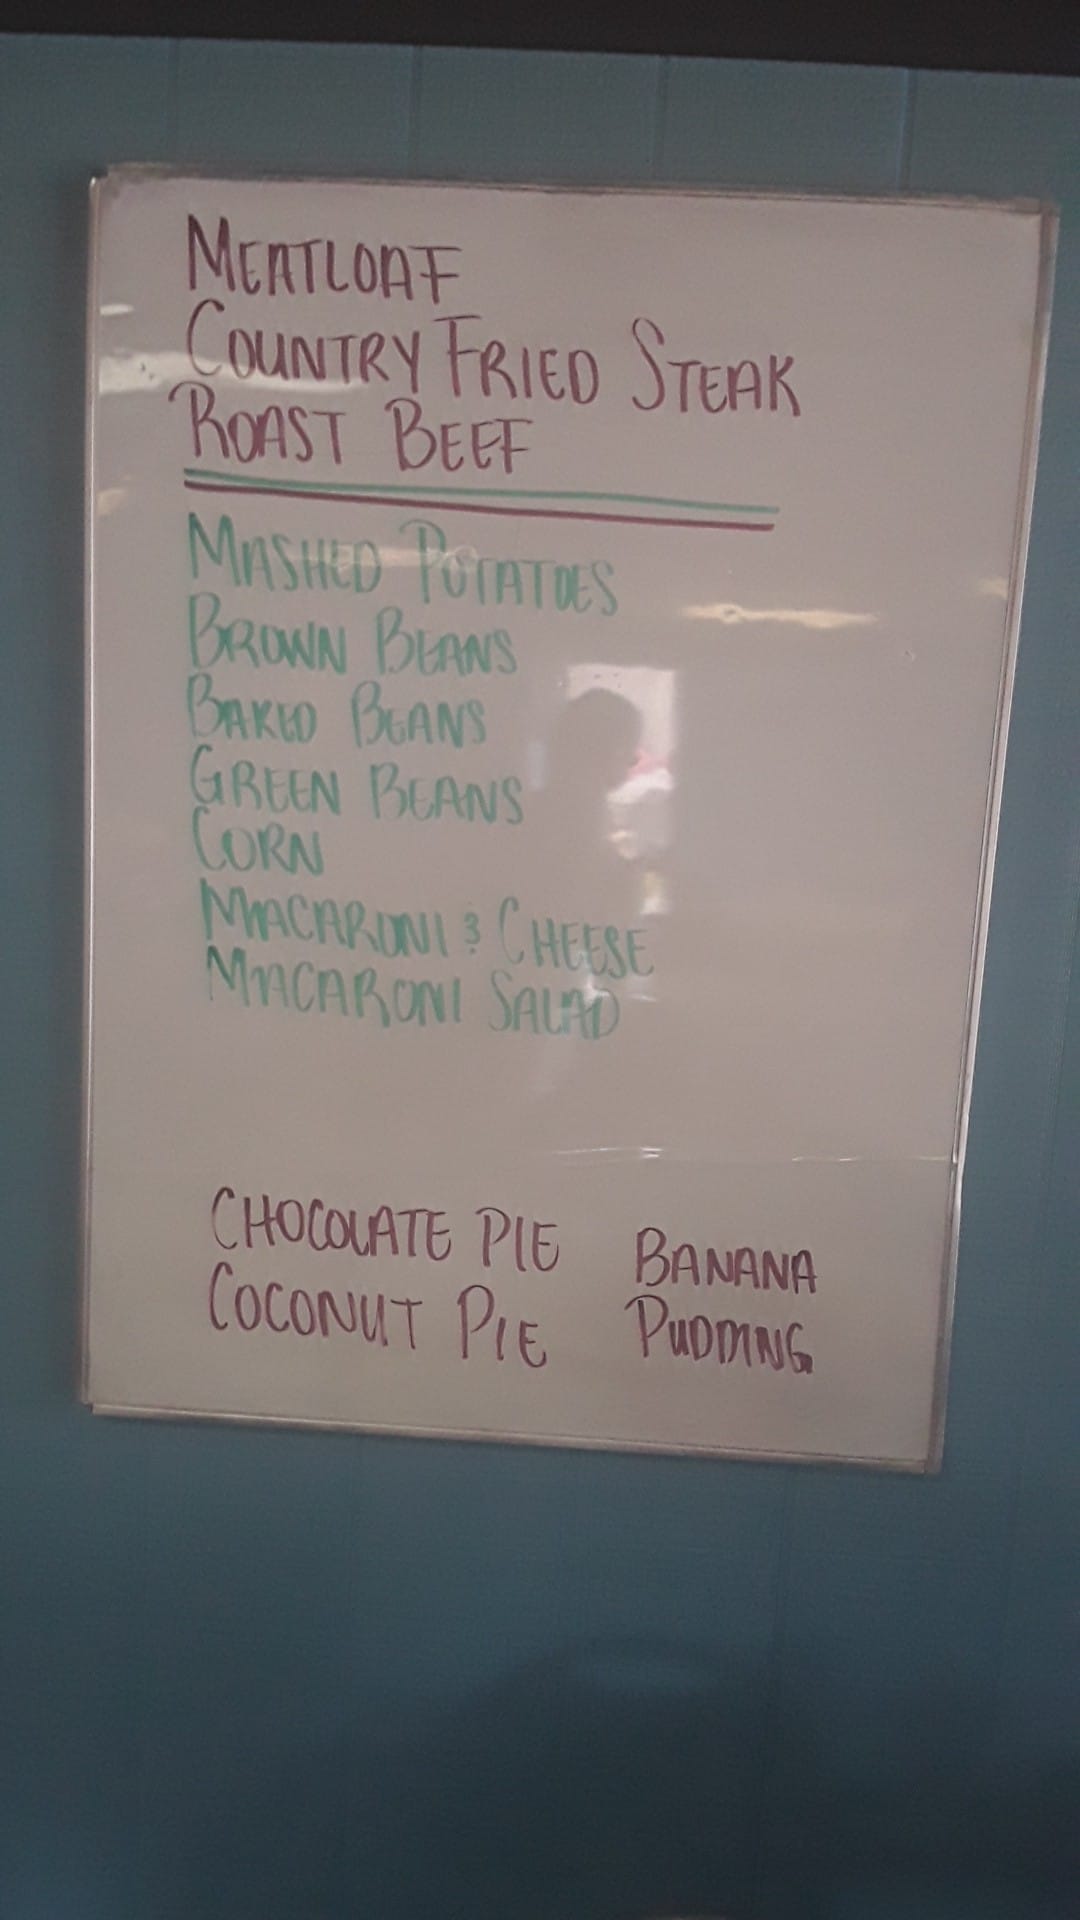 MEATLOAF
COUNTRY FRIED STEAK
ROAST BEEF
MASHED POTATOES
BROWN BEANS
BAKED BEANS
GREEN BEANS
CORN
MACARONI & CHEESE
MACARONI SALAD
CHOCOLATE PIE
COCONUT PIE
BANANA
PUDDING